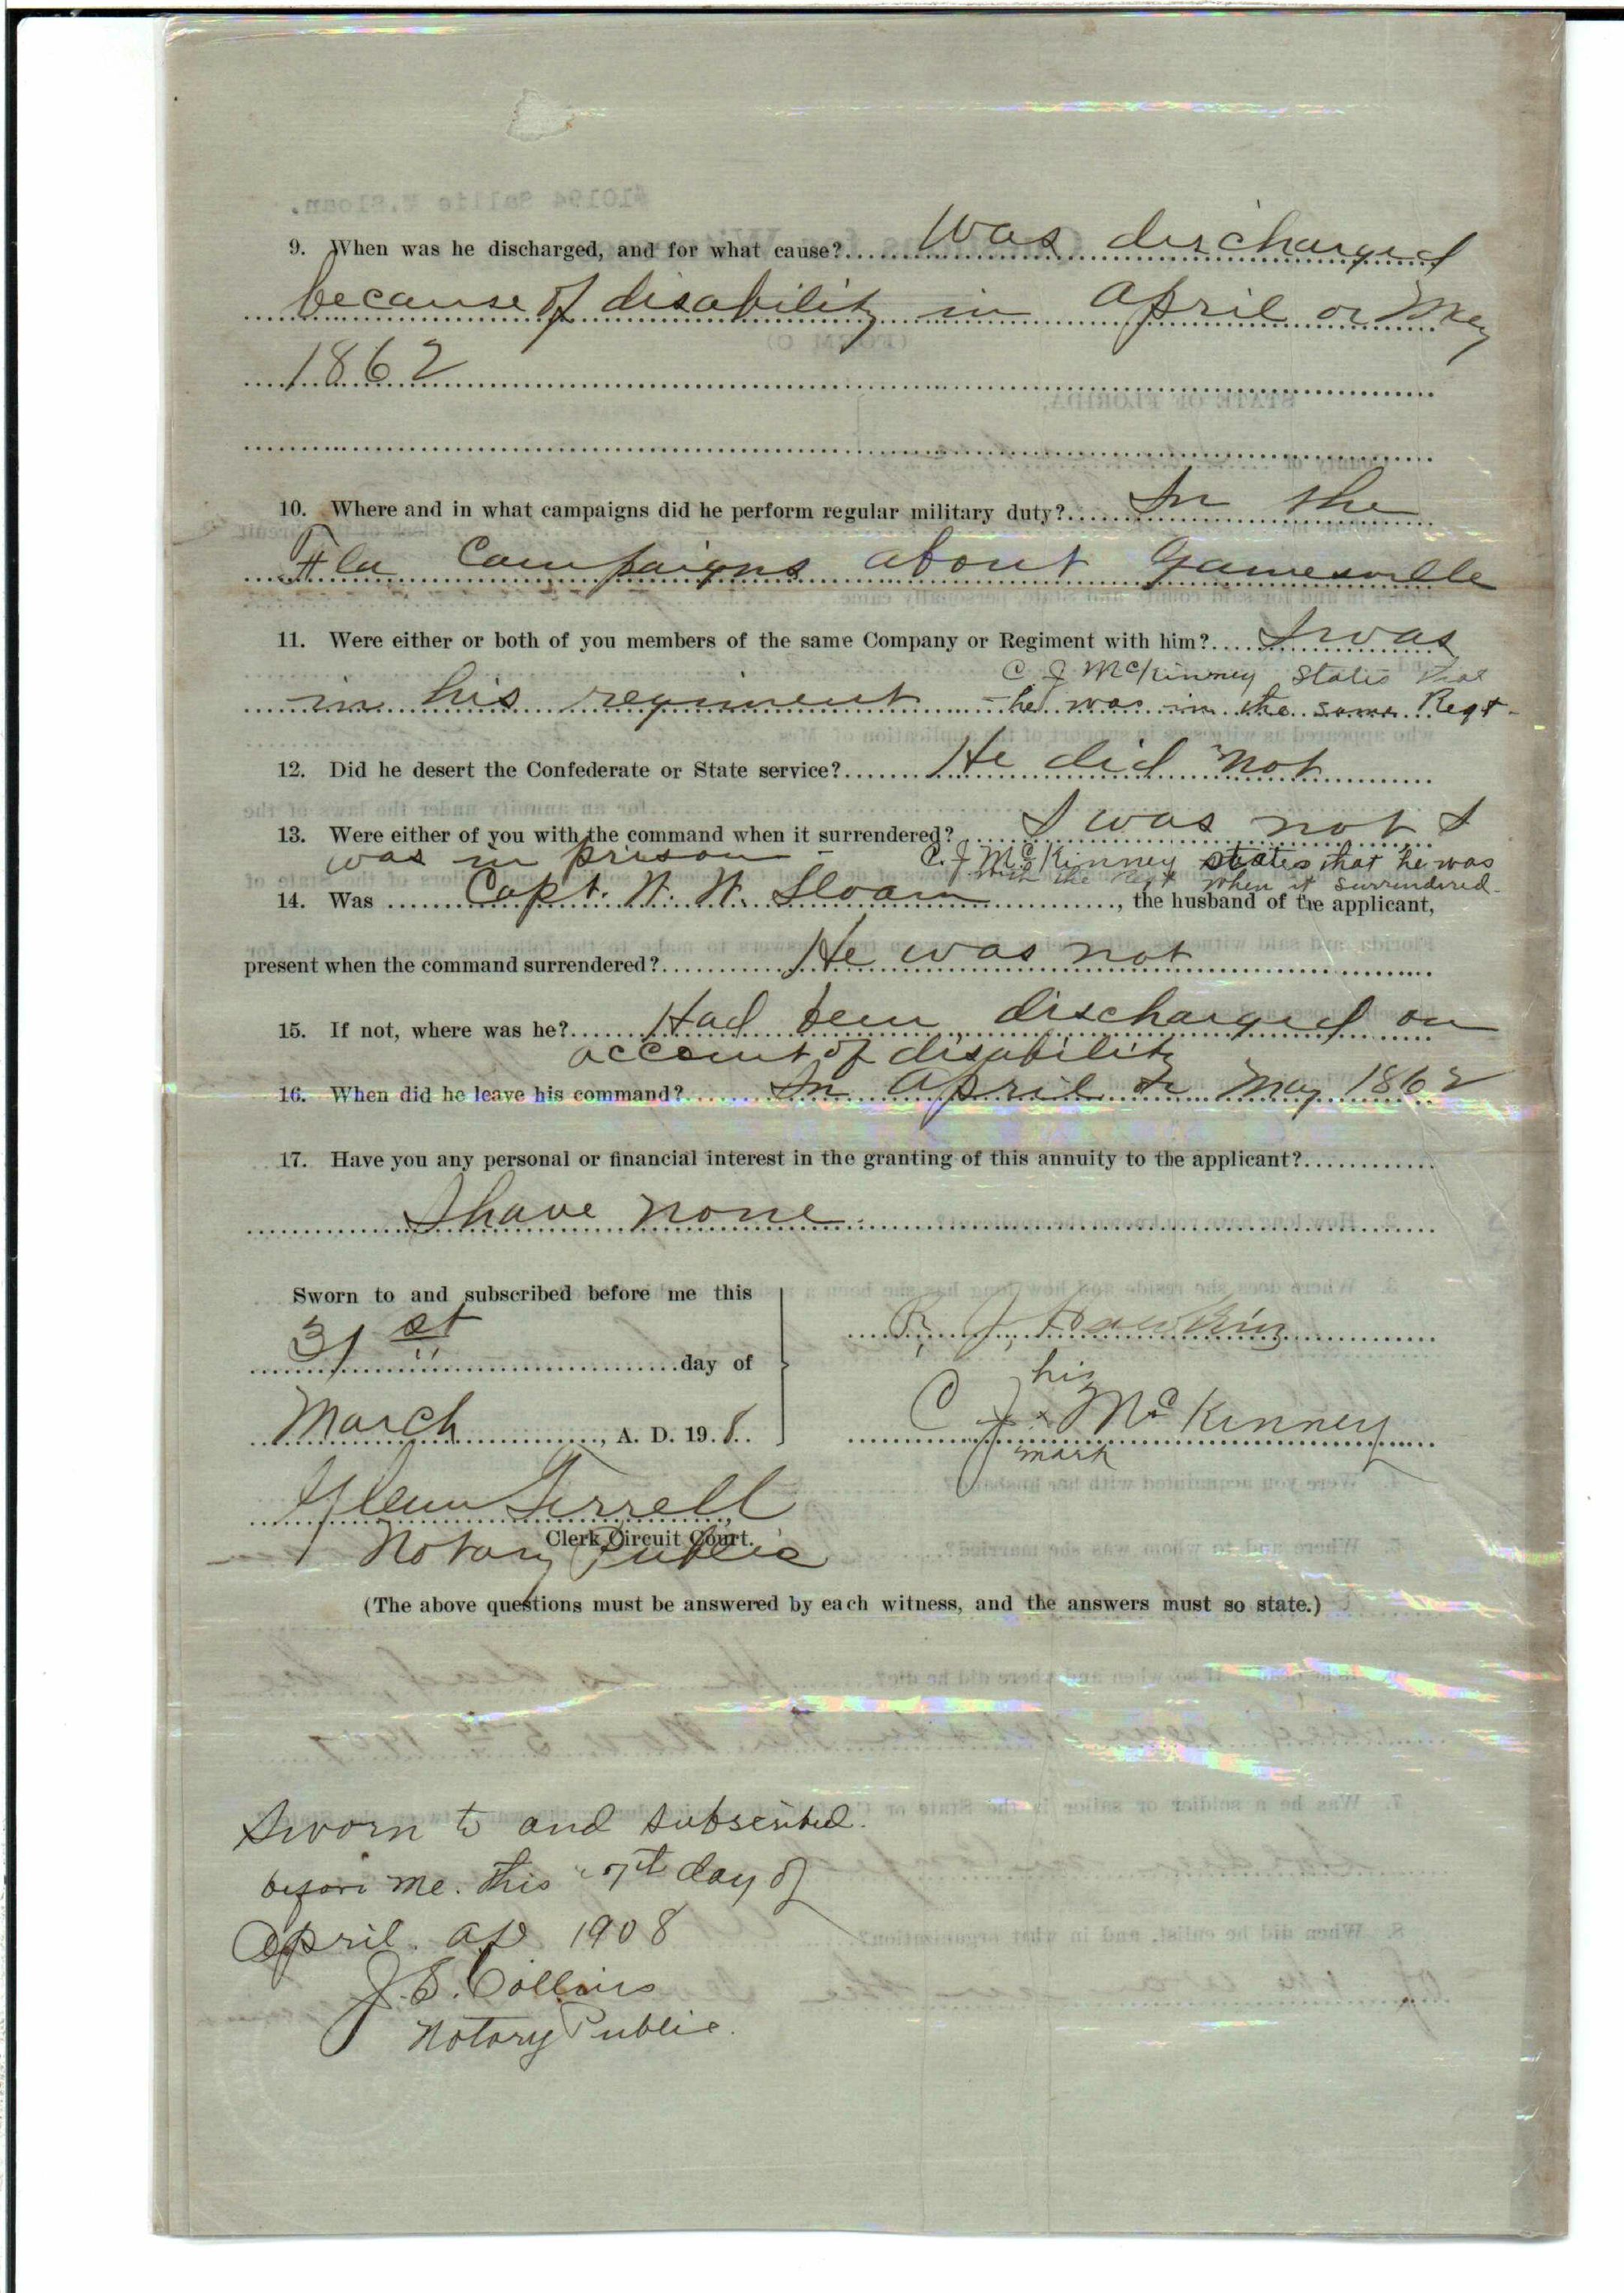 9. When was he discharged, and for what cause? Was discharged
because of disability in April or May
1862
10. Where and in what campaigns did he perform regular military duty? In the
Fla Campaigns about Gainesville
11. Were either or both of you members of the same Company or Regiment with him? I was
in his regiment - C. J McKinney States that
he was in the same Regt.
12. Did he desert the Confederate or State service? He did not
13. Were either of you with the command when it surrendered? I was not I
was in prison - C. J McKinney states that he was
with the Regt when it surrendered.
14. Was Capt. W. W. Sloan, the husband of the applicant,
present when the command surrendered? He was not
15. If not, where was he? Had been discharged on
account of disability
16. When did he leave his command? In April or May 1862
17. Have you any personal or financial interest in the granting of this annuity to the applicant?
I have none
Sworn to and subscribed before me this
31st day of
March, A. D. 19 8.
R. J.
his
C J x McKinney
mark
Glenn Terrell
Clerk Circuit Court.
Notary Public
(The above questions must be answered by each witness, and the answers must so state.)
Sworn to and subscribed
before me this 7th day of
April. AD 1908
J. S. Collins
Notary Public.